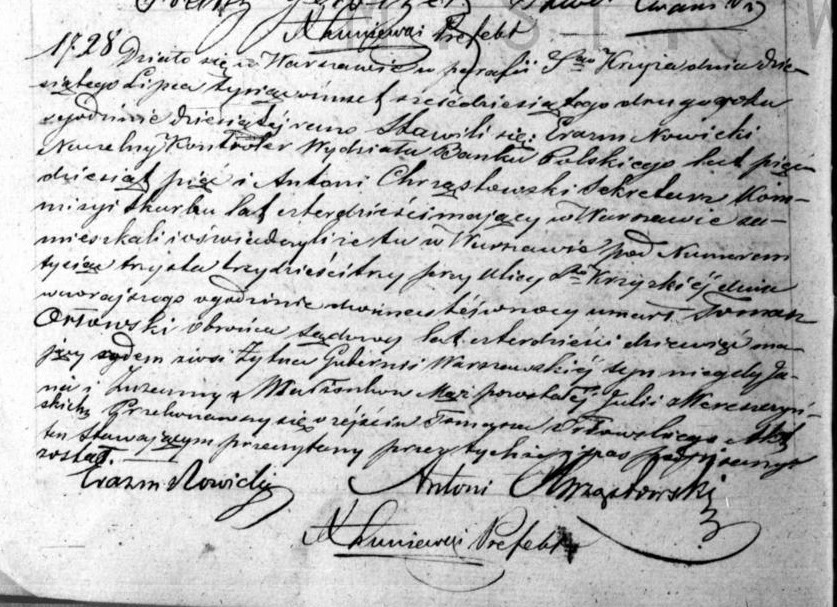 Akuniewski Prefekt
1728 Działo się w Warszawie w parafii Sgo Krzyża dnia dzie-
siątego Lipca tysiąc ośmset sześćdziesiątego drugo roku
o godzinie dziesiątéj rano Stawili się: Erazm Nowicki
Naczelny Kontroler Wydziału Banku Polskiego lat pięć-
dziesiąt pięć i Antoni Chrząstowski Sekretarz Kom-
missyi Skarbu lat czterdzieści mający w Warszawie za-
mieszkali i oświadczyli że tu w Warszawie pod Numerem
tysiąc trzysta trzydzieści trzy przy Ulicy Sto Krzyzkiéj dnia
wczorajszego o godzinie dwunastéj w nocy umarł Tomasz
Orłowski Obrońca Sądowy lat czterdzieści dziewięć ma-
jący rodem ze wsi Żytna Gubernii Warszawskiéj syn niegdy Ja-
na i Zuzanny Małżonków Mąż pozostałéj Julii z Werceszyń-
skich Przekonawszy się o zejściu Tomasza Orłowskiego Akt
ten Stawającym przeczytany przez tychże i nas podpisany
został.
Erazm Nowicki Antoni Chrząstowski
Prefekt